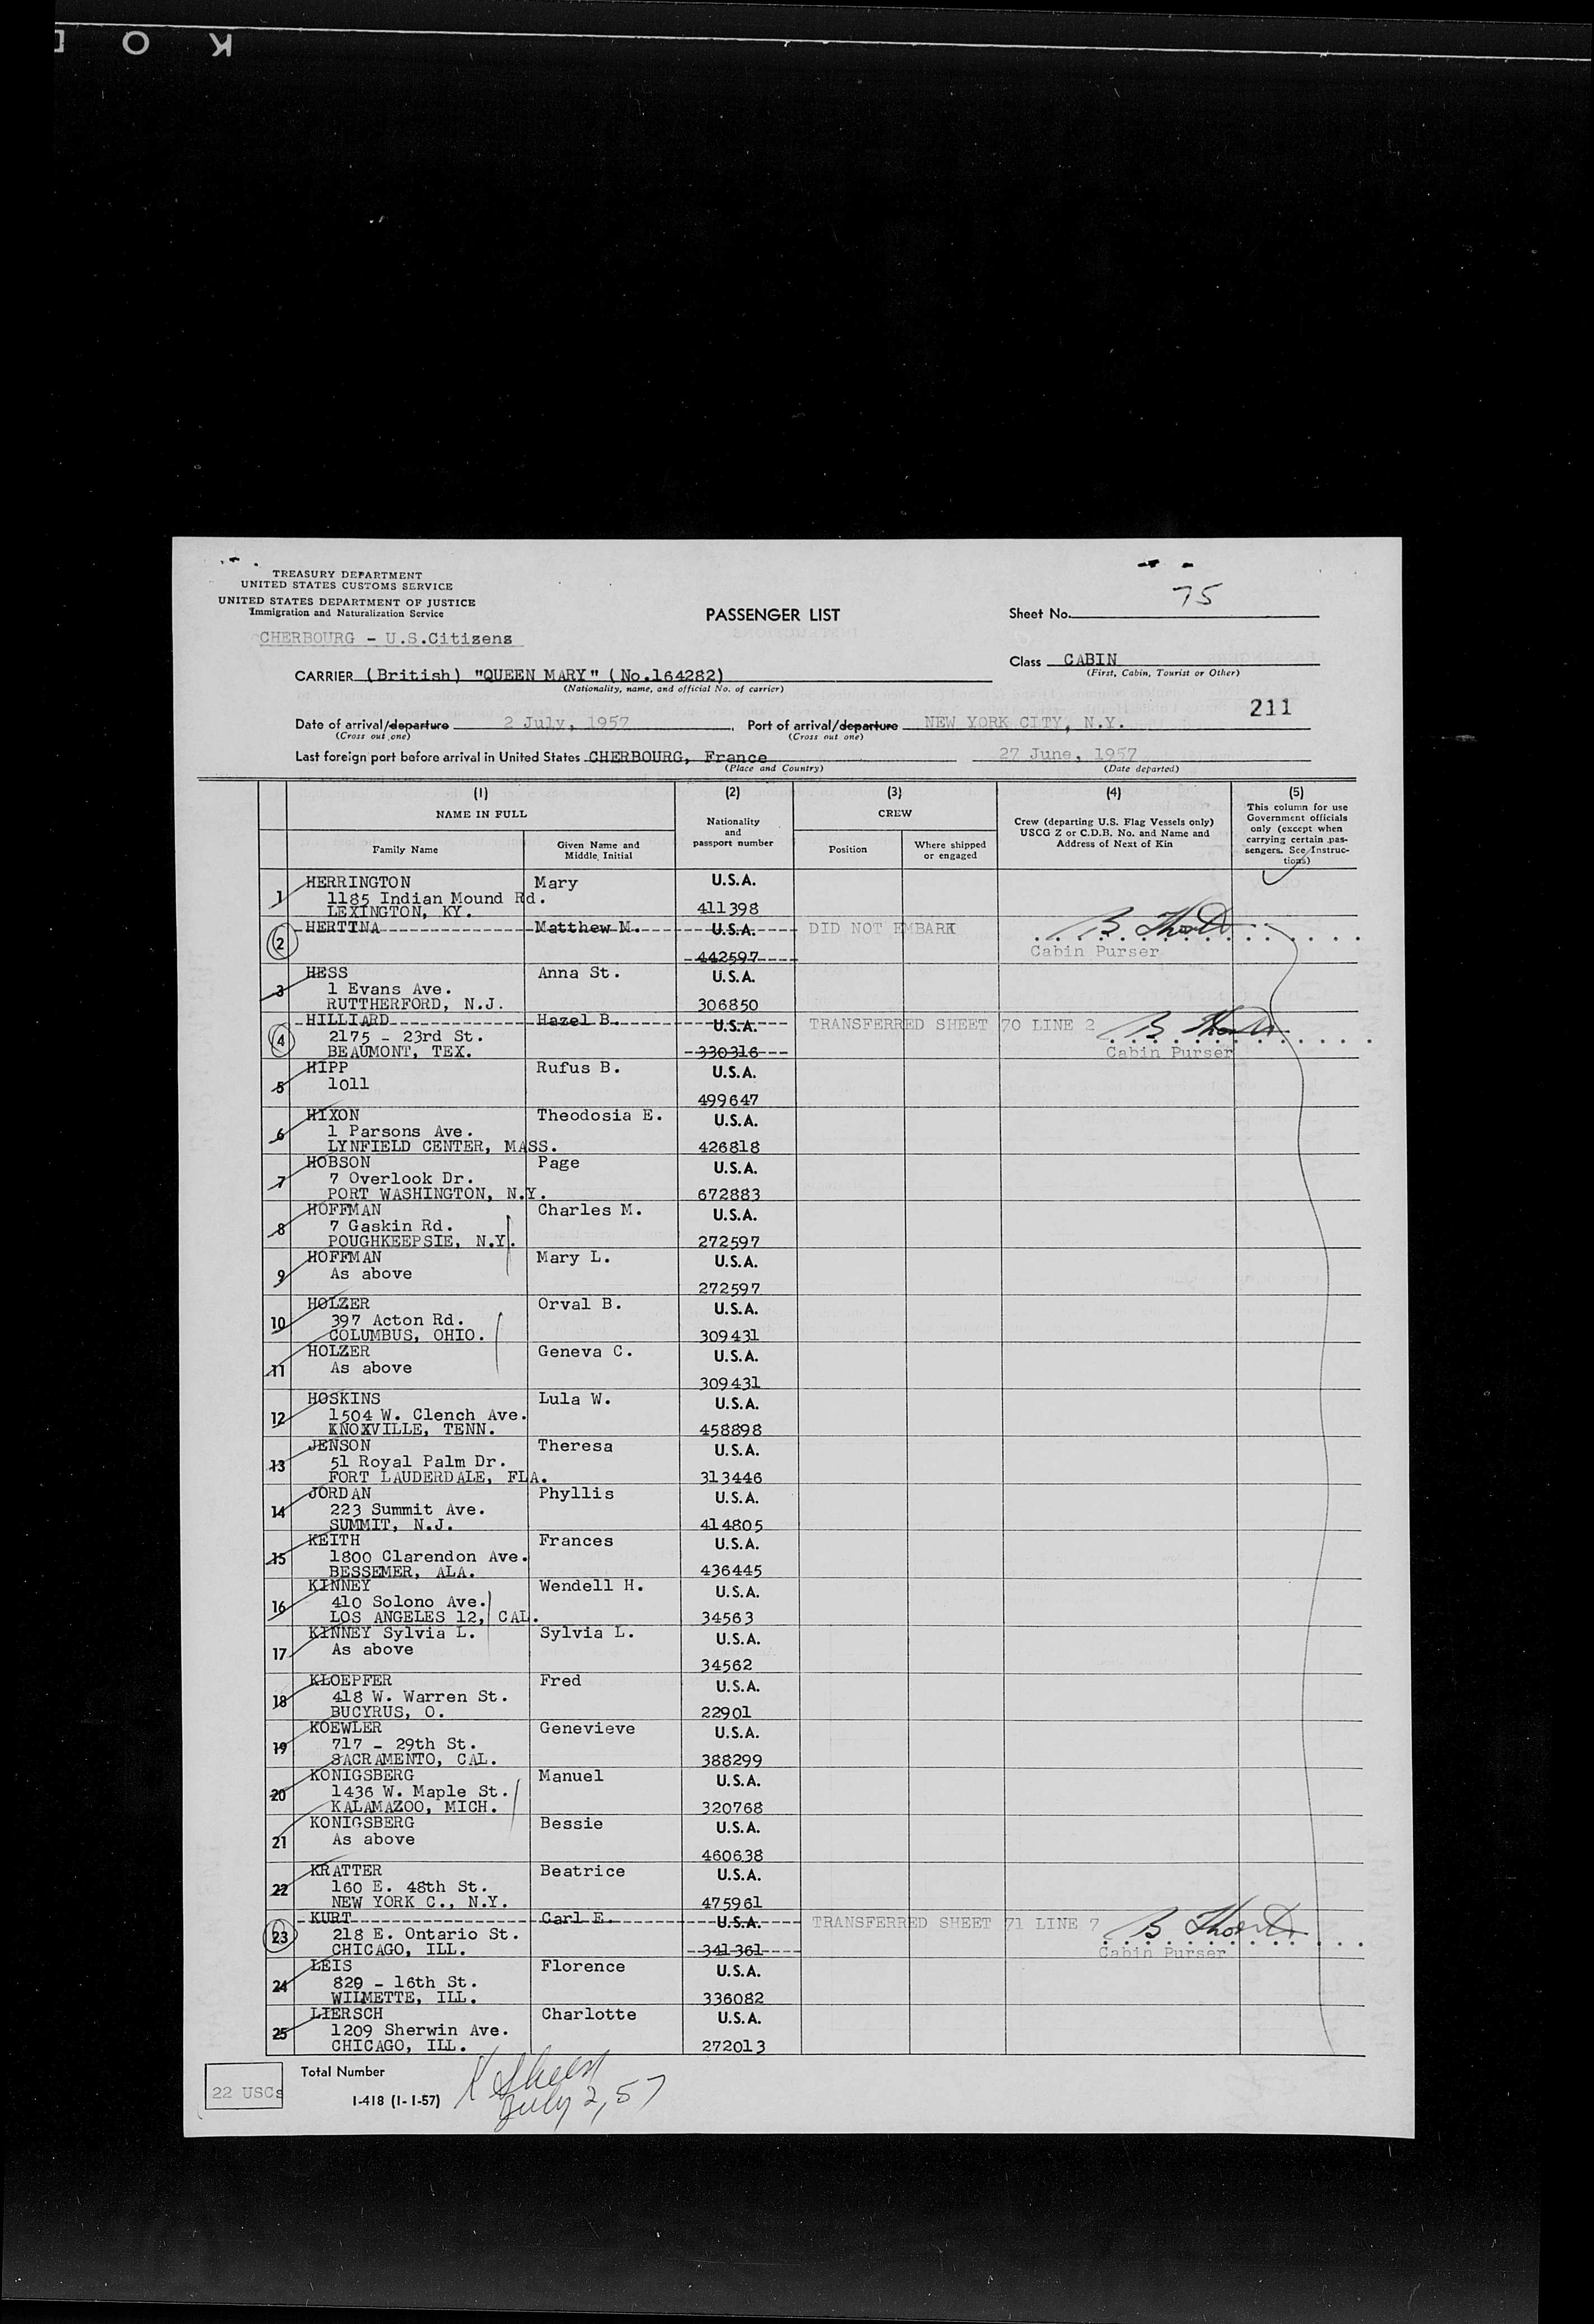 K O D
TREASURY DEPARTMENT
UNITED STATES CUSTOMS SERVICE
UNITED STATES DEPARTMENT OF JUSTICE
Immigration and Naturalization Service
CHERBOURG - U.S.Citizens
PASSENGER LIST
Sheet No. 75
Class CABIN
(First, Cabin, Tourist or Other)
CARRIER (British) "QUEEN MARY" (No.164282)
(Nationality, name, and official No. of carrier)
211
Date of arrival/departure 2 July, 1957. Port of arrival/departure NEW YORK CITY, N.Y.
(Cross out one) (Cross out one)
Last foreign port before arrival in United States CHERBOURG, France 27 June, 1957
(Place and Country) (Date departed)
(1) (2) (3) (4) (5)
NAME IN FULL
Family Name
Given Name and Middle Initial
Nationality and passport number
CREW
Position
Where shipped or engaged
Crew (departing U.S. Flag Vessels only)
USCG Z or C.D.B. No. and Name and
Address of Next of Kin
This column for use
Government officials
only (except when
carrying certain pas-
sengers. See Instruc-
tions)
1 HERRINGTON Mary U.S.A.
1185 Indian Mound Rd.
LEXINGTON, KY. 411398
2 HERTINA Matthew M. U.S.A. DID NOT EMBARK
442597 Cabin Purser
3 HESS Anna St. U.S.A.
1 Evans Ave.
RUTTHERFORD, N.J. 306850
4 HILLIARD Hazel B. U.S.A. TRANSFERRED SHEET 70 LINE 2
2175 - 23rd St.
BEAUMONT, TEX. 330316 Cabin Purser
5 HIPP Rufus B. U.S.A.
1011
499647
6 HIXON Theodosia E. U.S.A.
1 Parsons Ave.
LYNFIELD CENTER, MASS. 426818
7 HOBSON Page U.S.A.
7 Overlook Dr.
PORT WASHINGTON, N.Y. 672883
8 HOFFMAN Charles M. U.S.A.
7 Gaskin Rd.
POUGHKEEPSIE, N.Y. 272597
9 HOFFMAN Mary L. U.S.A.
As above
272597
10 HOLZER Orval B. U.S.A.
397 Acton Rd.
COLUMBUS, OHIO. 309431
11 HOLZER Geneva C. U.S.A.
As above
309431
12 HOSKINS Lula W. U.S.A.
1504 W. Clench Ave.
KNOXVILLE, TENN. 458898
13 JENSON Theresa U.S.A.
51 Royal Palm Dr.
FORT LAUDERDALE, FLA. 313446
14 JORDAN Phyllis U.S.A.
223 Summit Ave.
SUMMIT, N.J. 414805
15 KEITH Frances U.S.A.
1800 Clarendon Ave.
BESSEMER, ALA. 436445
16 KINNEY Wendell H. U.S.A.
410 Solono Ave.
LOS ANGELES 12, CAL. 34563
17 KINNEY Sylvia L. Sylvia L. U.S.A.
As above
34562
18 KLOEPFER Fred U.S.A.
418 W. Warren St.
BUCYRUS, O. 22901
19 KOEWLER Genevieve U.S.A.
717 - 29th St.
SACRAMENTO, CAL. 388299
20 KONIGSBERG Manuel U.S.A.
1436 W. Maple St.
KALAMAZOO, MICH. 320768
21 KONIGSBERG Bessie U.S.A.
As above
460638
22 KRATTER Beatrice U.S.A.
160 E. 48th St.
NEW YORK C., N.Y. 475961
23 KURT Carl E. U.S.A. TRANSFERRED SHEET 71 LINE 7
218 E. Ontario St.
CHICAGO, ILL. 341361 Cabin Purser
24 LEIS Florence U.S.A.
829 - 16th St.
WILMETTE, ILL. 336082
25 LIERSCH Charlotte U.S.A.
1209 Sherwin Ave.
CHICAGO, ILL. 272013
Total Number
22 USCs
I-418 (1-1-57)
July 2, 57